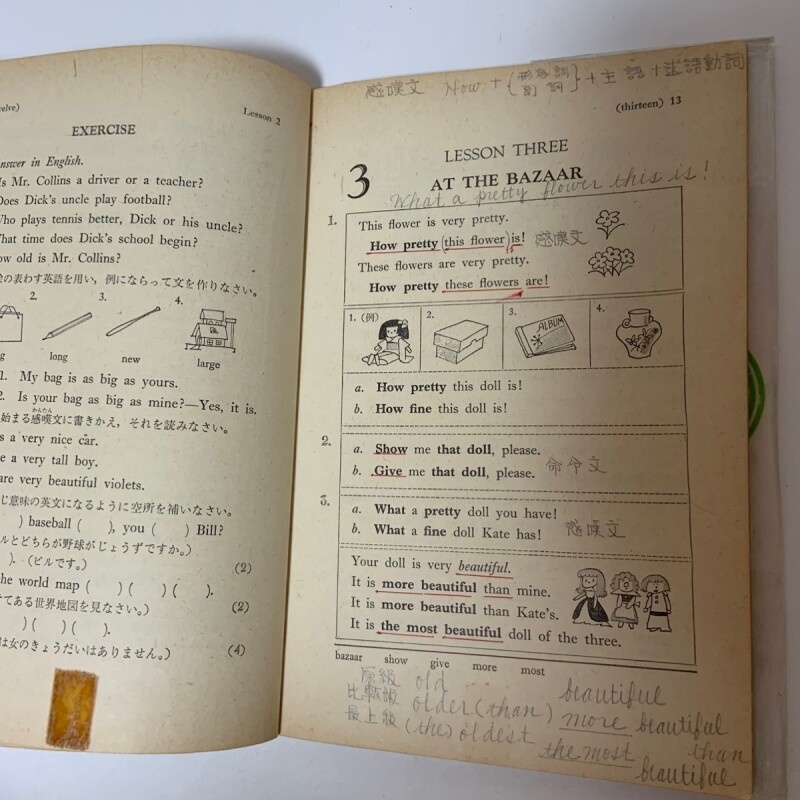 Lesson 2
EXERCISE
nswer in English.
s Mr. Collins a driver or a teacher?
Does Dick's uncle play football?
Who plays tennis better, Dick or his uncle?
What time does Dick's school begin?
ow old is Mr. Collins?
の表わす英語を用い，例にならって文を作りなさい。
2. 3. 4.
g long new large
1. My bag is as big as yours.
2. Is your bag as big as mine?—Yes, it is.
かんたん
始まる感嘆文に書きかえ，それを読みなさい。
s a very nice car.
e a very tall boy.
re very beautiful violets.
じ意味の英文になるように空所を補いなさい。
) baseball ( ), you ( ) Bill?
ルとどちらが野球がじょうずですか。)
). (ビルです。) (2)
he world map ( ) ( ) ( ).
てある世界地図を見なさい。) (2)
) ( ) ( ).
は女のきょうだいはありません。) (4)
感嘆文 How + {形容詞 副詞} + 主語 + 述語動詞
(thirteen) 13
LESSON THREE
3 AT THE BAZAAR
What a pretty flower this is!
1. This flower is very pretty.
How pretty (this flower) is! 感嘆文
These flowers are very pretty.
How pretty these flowers are!
1. (例) 2. 3. 4.
ALBUM
a. How pretty this doll is!
b. How fine this doll is!
2. a. Show me that doll, please.
b. Give me that doll, please. 命令文
3. a. What a pretty doll you have!
b. What a fine doll Kate has! 感嘆文
Your doll is very beautiful.
It is more beautiful than mine.
It is more beautiful than Kate's.
It is the most beautiful doll of the three.
bazaar show give more most
原級 old beautiful
比較級 older (than) more beautiful than
最上級 (the) oldest the most beautiful